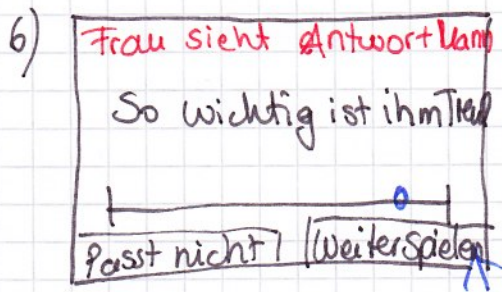 6)
Frau sieht Antwort Mann
So wichtig ist ihm Treue
Passt nicht
Weiterspielen